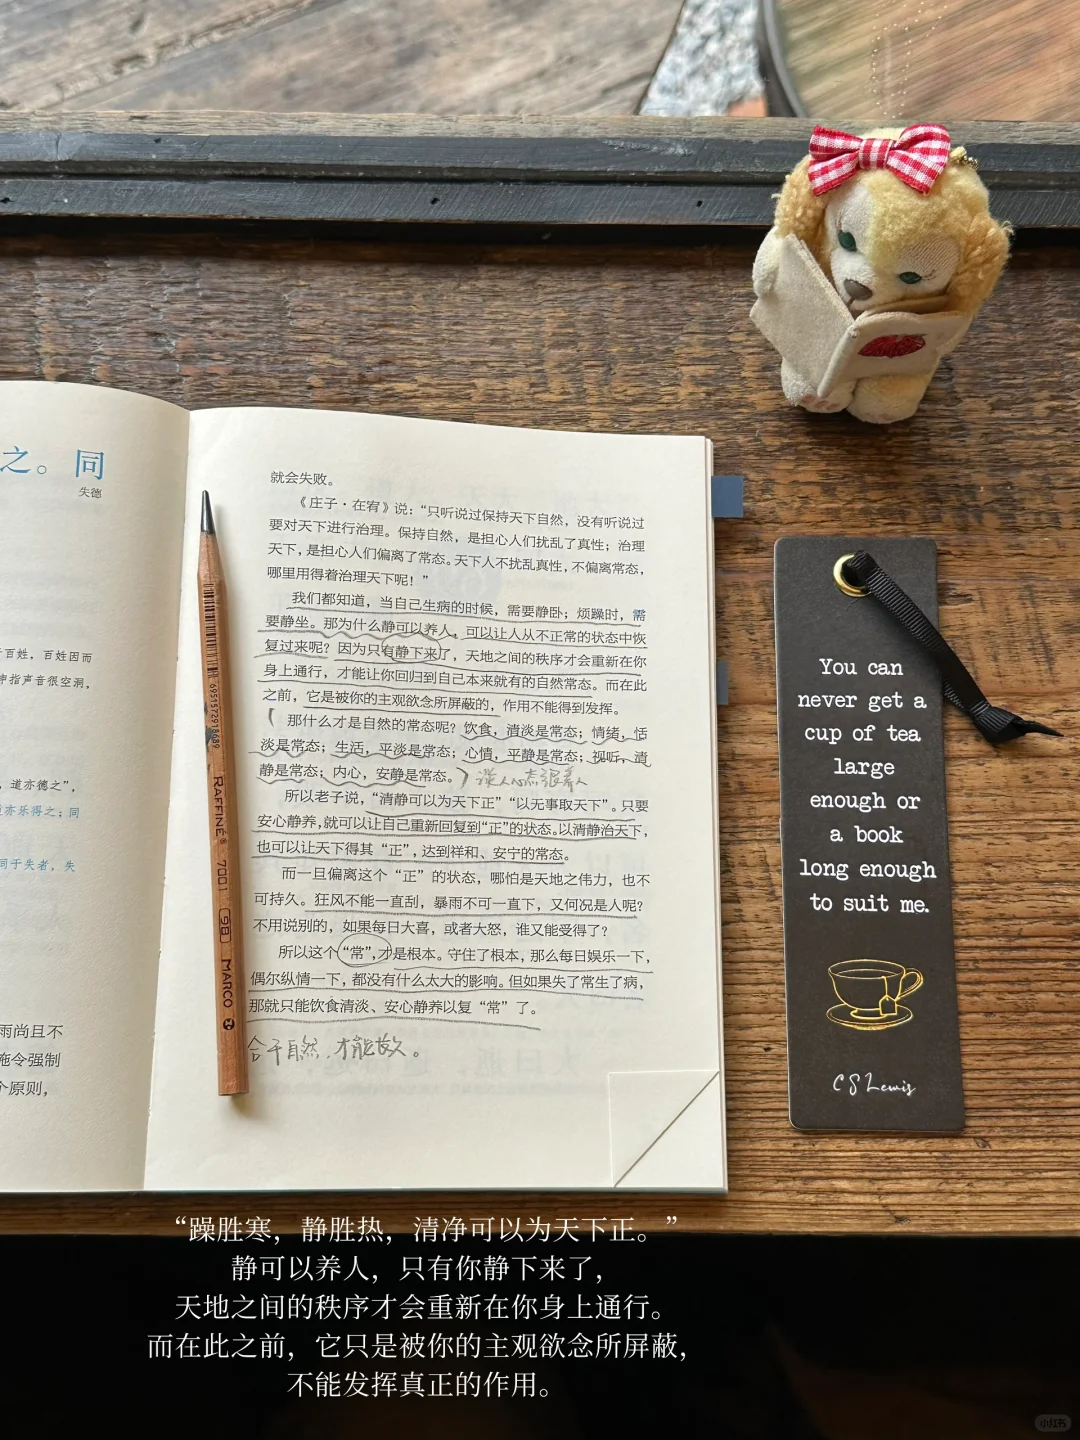 之。同
失德
百姓，百姓因而
指声音很空洞，
，道亦德之”，
亦乐得之；同
同于失者，失
雨尚且不
施令强制
个原则，
就会失败。
《庄子·在宥》说：“只听说过保持天下自然，没有听说过
要对天下进行治理。保持自然，是担心人们扰乱了真性；治理
天下，是担心人们偏离了常态。天下人不扰乱真性，不偏离常态，
哪里用得着治理天下呢！”
我们都知道，当自己生病的时候，需要静卧；烦躁时，需
要静坐。那为什么静可以养人，可以让人从不正常的状态中恢
复过来呢？因为只有静下来了，天地之间的秩序才会重新在你
身上通行，才能让你回归到自己本来就有的自然常态。而在此
之前，它是被你的主观欲念所屏蔽的，作用不能得到发挥。
那什么才是自然的常态呢？饮食，清淡是常态；情绪，恬
淡是常态；生活，平淡是常态；心情，平静是常态；视听，清
静是常态；内心，安静是常态。
所以老子说，“清静可以为天下正”“以无事取天下”。只要
安心静养，就可以让自己重新回复到“正”的状态。以清静治天下，
也可以让天下得其“正”，达到祥和、安宁的常态。
而一旦偏离这个“正”的状态，哪怕是天地之伟力，也不
可持久。狂风不能一直刮，暴雨不可一直下，又何况是人呢？
不用说别的，如果每日大喜，或者大怒，谁又能受得了？
所以这个“常”，才是根本。守住了根本，那么每日娱乐一下，
偶尔纵情一下，都没有什么太大的影响。但如果失了常生了病，
那就只能饮食清淡、安心静养以复“常”了。
合于自然，才能长久。
6951572918689
RAFFINÉ 7001 9B MARCO
You can
never get a
cup of tea
large
enough or
a book
long enough
to suit me.
C S Lewis
“躁胜寒，静胜热，清净可以为天下正。”
静可以养人，只有你静下来了，
天地之间的秩序才会重新在你身上通行。
而在此之前，它只是被你的主观欲念所屏蔽，
不能发挥真正的作用。
小红书